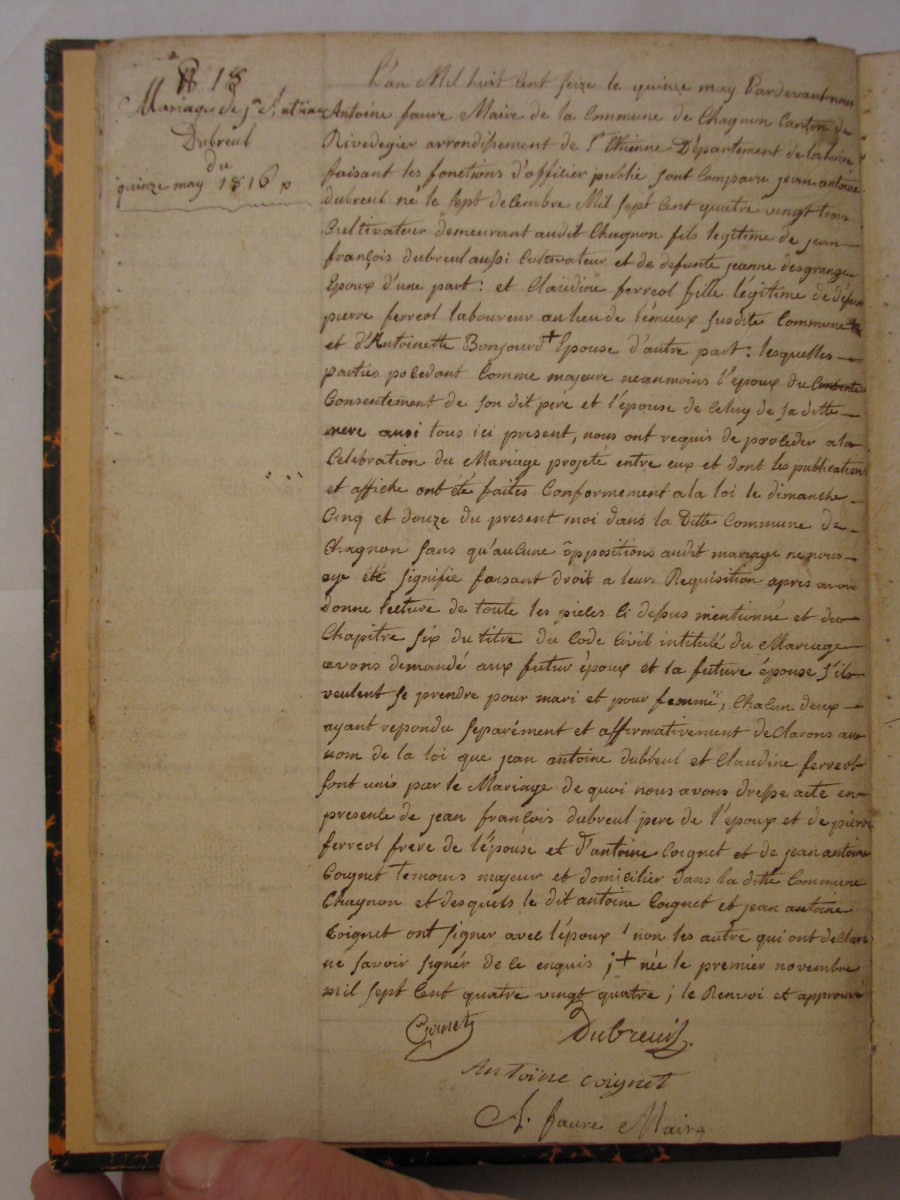 N 18
Mariage de jn Antoine
Dubreul
du
quinze may 1816
L'an Mil huit Cent seize le quinze may Pardevant nous
Antoine faure Maire de la Commune de Chagnon Canton de
Rivedegier arrondissement de St Etienne Département de la loire
faisant les fonctions d'officier public sont Comparu jean antoine
dubreul né le sept decembre Mil sept Cent quatre vingt trois
Cultivateur demeurant audit Chagnon fils legitime de jean
françois dubreul aussi Cultivateur et de defunte jeanne desgrange
Epoux d'une part : et Claudine ferreol fille légitime de défun
pierre ferreol laboureur au lieu de lémeux susdite Commune
et d'Antoinette Bonjourd + Epouse d'autre part : lesquelles
parties pocedant Comme majeure neanmoins l'epoux du
Consentement de son dit pere et l'épouse de Celuy de sa ditte
mere aussi tous ici present, nous ont requis de proceder a la
Celebration du Mariage projeté entre eux et dont les publication
et affiche ont été faites Conformement a la loi le dimanche
Cinq et douze du present moi dans la Ditte Commune de
Chagnon sans qu'aucune oppositions audit mariage ne nous
aye été signifie faisant droit a leurs Requisition apres avoir
donne lecture de toute les pieces Ci dessus mentionné et du
Chapitre six du titre du Code Civil intitulé du Mariage
avons demandé aux futur époux et la future épouse s'ils
veulent se prendre pour mari et pour femme, Chacun deux
ayant repondu separément et affirmativement declarons au
nom de la loi que jean antoine dubreul et Claudine ferreol
sont unis par le Mariage de quoi nous avons dresse acte en
presence de jean françois dubreul pere de l'epoux et de pierre
ferreol frere de l'épouse et d'antoine Coignet et de jean antoine
Coignet temoins majeur et domicilier dans la ditte Commune
Chagnon et desquels le dit antoine Coignet et jean antoine
Coignet ont signer avec l'époux non les autre qui ont declare
ne savoir signér de ce enquis ; + née le premier novembre
mil sept Cent quatre vingt quatre ; le Renvoi et approuvé
Dubreuil
Antoine coignet
A. faure Maire